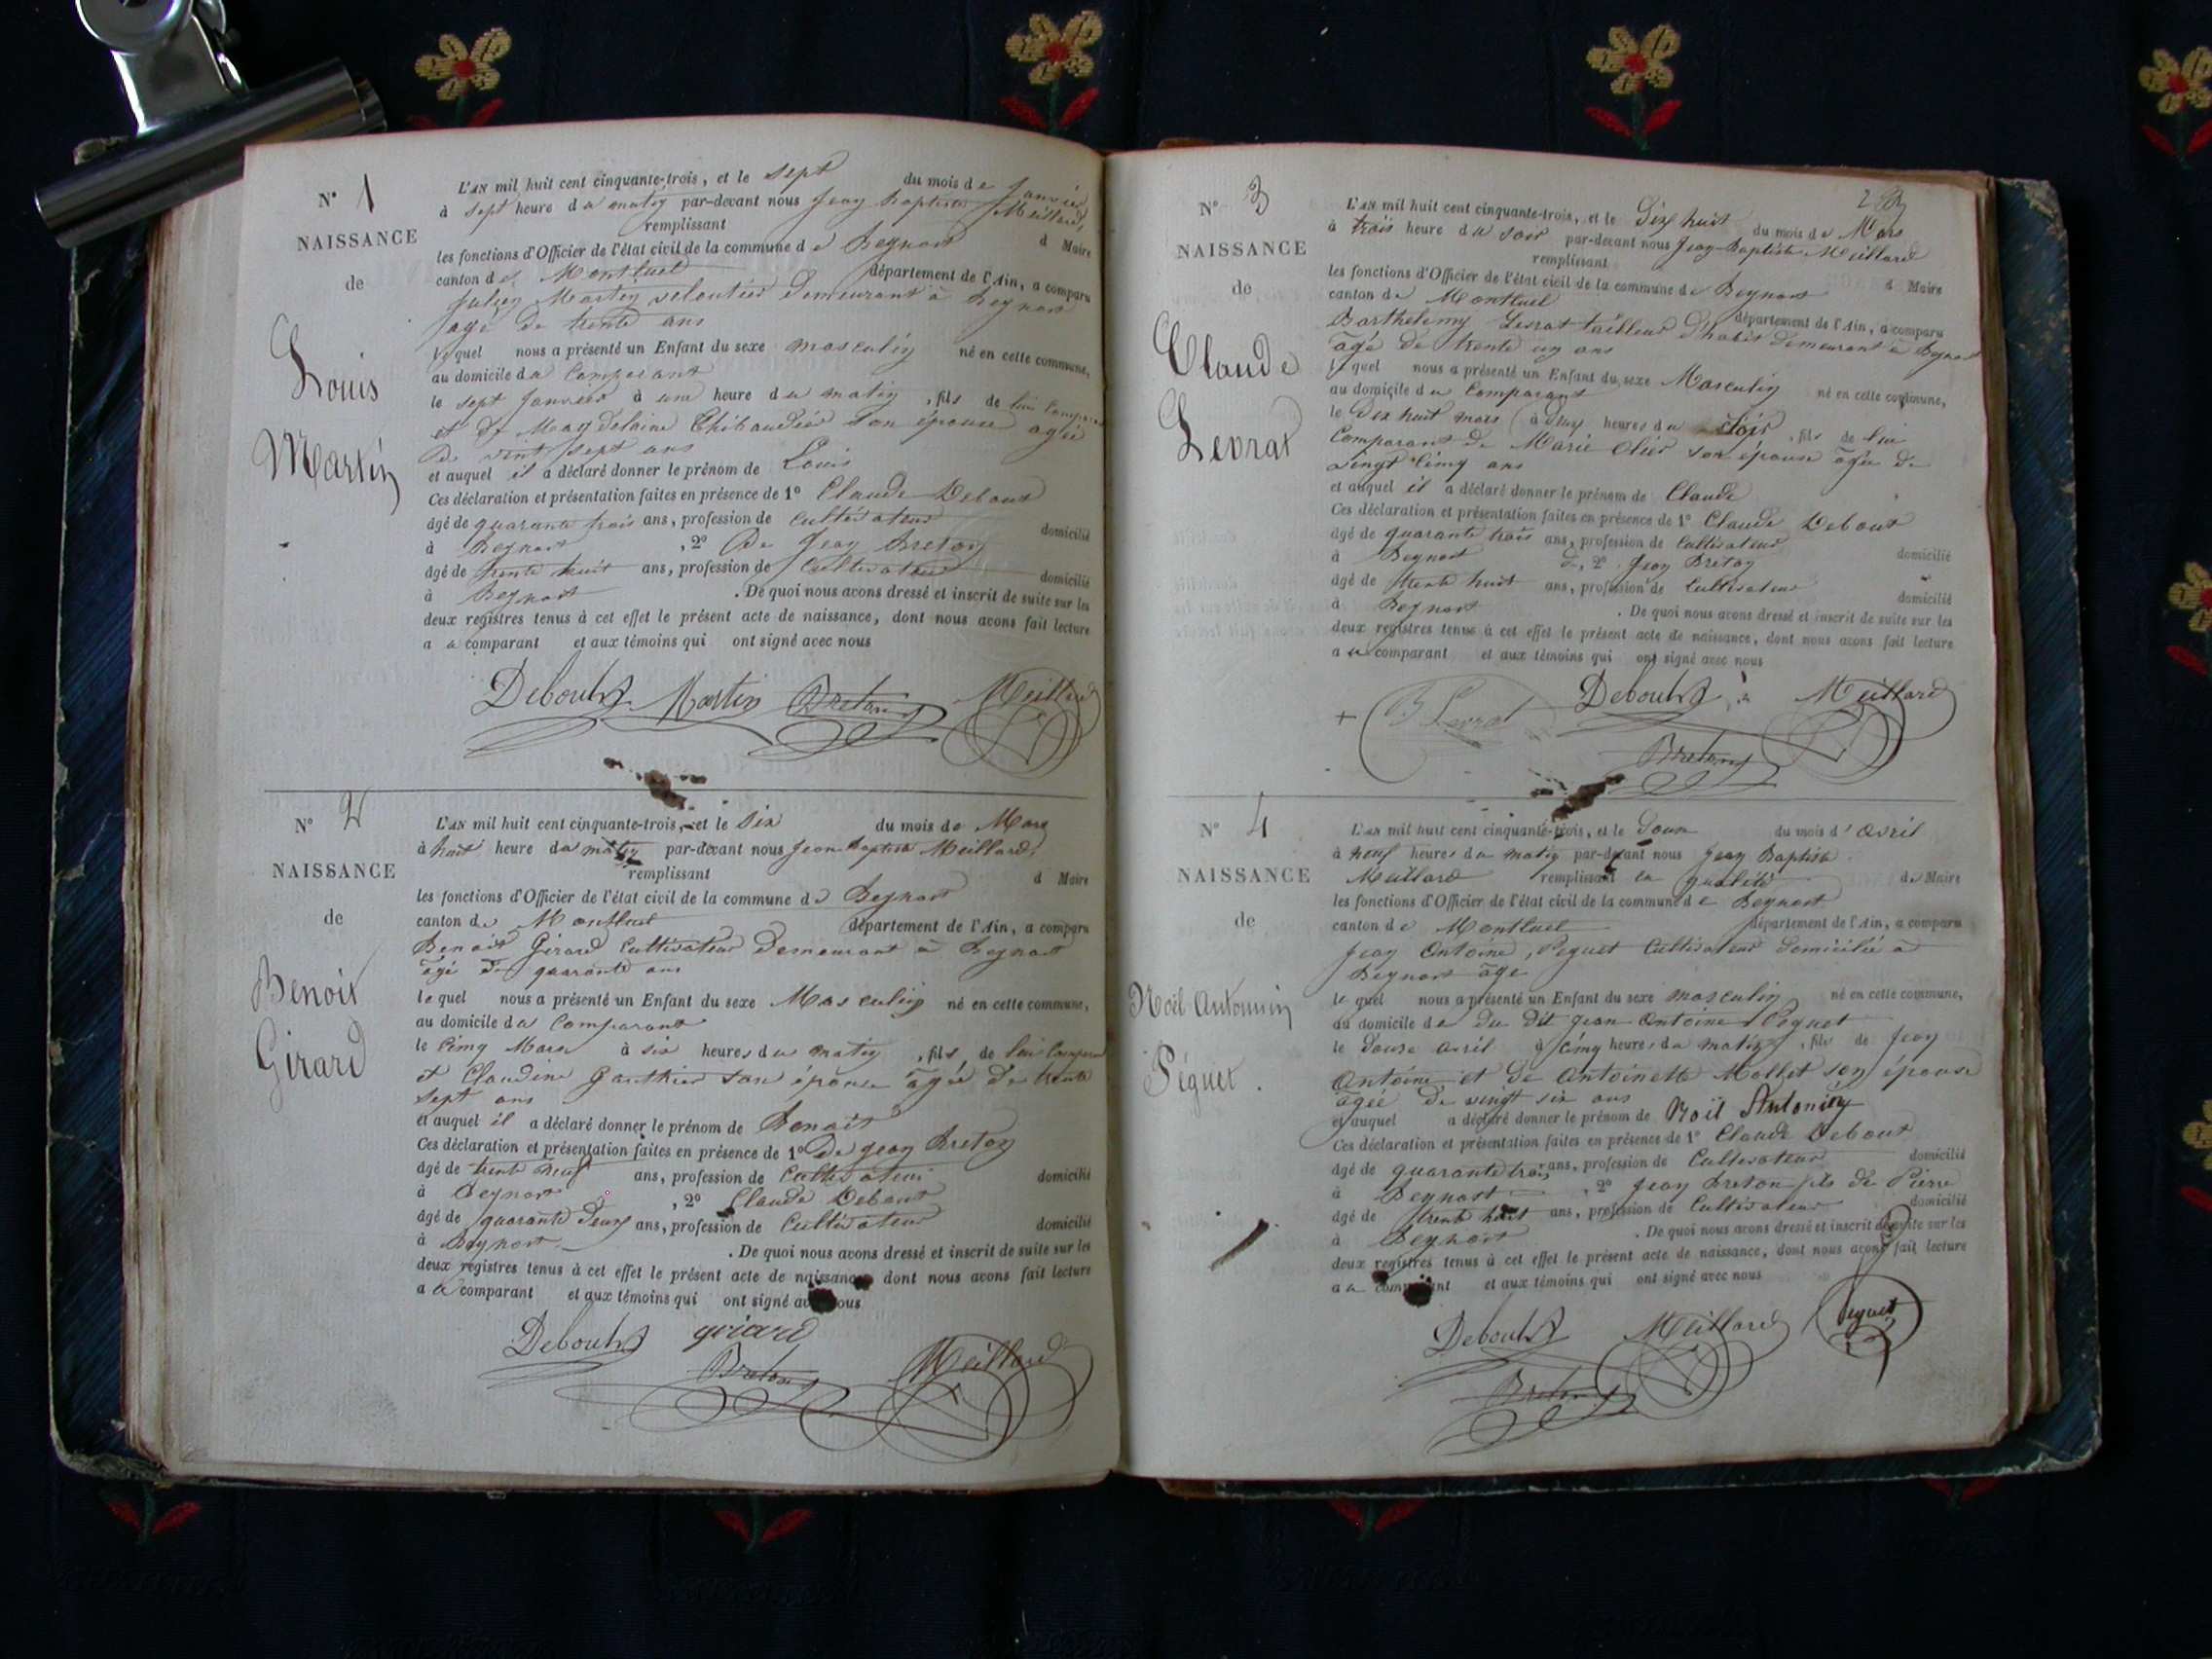 N° 1
NAISSANCE
de
Louis
Martin
L'AN mil huit cent cinquante-trois, et le sept du mois de Janvier
à sept heure du matin par-devant nous Jean Baptiste Meillard,
remplissant d Maire
les fonctions d'Officier de l'état civil de la commune de Beynost
canton de Montluel département de l'Ain, a comparu
Martin demeurant à Beynost
agé de trente ans
lequel nous a présenté un Enfant du sexe masculin né en cette commune,
au domicile du Comparant
le sept Janvier à une heure du matin, fils de lui Comparant
et de Magdelaine Thibaudier son épouse agée
de vint sept ans
et auquel il a déclaré donner le prénom de Louis
Ces déclaration et présentation faites en présence de 1° Claude Debout
âgé de quarante trois ans, profession de Cultivateur domicilié
à Beynost, 2° De Jean Breton
âgé de trente huit ans, profession de Cultivateur domicilié
à Beynost. De quoi nous avons dressé et inscrit de suite sur les
deux registres tenus à cet effet le présent acte de naissance, dont nous avons fait lecture
a u comparant et aux témoins qui ont signé avec nous
Debout Martin Breton Meillard
N° 2
NAISSANCE
de
Benoit
Girard
L'AN mil huit cent cinquante-trois, et le Six du mois de Mars
à huit heure du matin par-devant nous Jean Baptiste Meillard,
remplissant d Maire
les fonctions d'Officier de l'état civil de la commune de Beynost
canton de Montluel département de l'Ain, a comparu
Benoit Girard Cultivateur Demeurant à Beynost
âgé de quarante ans
lequel nous a présenté un Enfant du sexe Masculin né en cette commune,
au domicile du Comparant
le Cinq Mars à six heures du matin, fils de lui Comparant
et Claudine Gauthier son épouse âgée De trente
sept ans
et auquel il a déclaré donner le prénom de Benoit
Ces déclaration et présentation faites en présence de 1° De Jean Breton
âgé de trente neuf ans, profession de Cultivateur domicilié
à Beynost, 2° Claude Debout
âgé de quarante deux ans, profession de Cultivateur domicilié
à Beynost. De quoi nous avons dressé et inscrit de suite sur les
deux registres tenus à cet effet le présent acte de naissance dont nous avons fait lecture
a u comparant et aux témoins qui ont signé avec nous
Debout girard
Breton Meillard
N° 3
NAISSANCE
de
Claude
Levrat
L'AN mil huit cent cinquante-trois, et le Dix huit du mois de Mars
à trois heure du soir par-devant nous Jean-Baptiste Meillard
remplissant d Maire
les fonctions d'Officier de l'état civil de la commune de Beynost
canton de Montluel département de l'Ain, a comparu
Barthelemy Levrat tailleur D'habit demeurant à Beynost
âgé de trente ans
lequel nous a présenté un Enfant du sexe Masculin né en cette commune,
au domicile du Comparant
le Dix huit mars à deux heures du soir, fils de lui
Comparant de Marie Olier son épouse âgée de
vingt Cinq ans
et auquel il a déclaré donner le prénom de Claude
Ces déclaration et présentation faites en présence de 1° Claude Debout
âgé de quarante trois ans, profession de Cultivateur domicilié
à Beynost, 2° Jean Breton
âgé de trente huit ans, profession de Cultivateur domicilié
à Beynost. De quoi nous avons dressé et inscrit de suite sur les
deux registres tenus à cet effet le présent acte de naissance, dont nous avons fait lecture
a u comparant et aux témoins qui ont signé avec nous
B Levrat Debout Meillard
Breton
N° 4
NAISSANCE
de
Noël Antonnin
Péguet.
L'AN mil huit cent cinquante-trois, et le Douze du mois d'avril
à neuf heures du matin par-devant nous Jean Baptiste
Meillard remplissant en qualité de Maire
les fonctions d'Officier de l'état civil de la commune de Beynost
canton de Montluel département de l'Ain, a comparu
Jean Antoine, Peguet Cultivateur Domicilié a
Beynost âge
lequel nous a présenté un Enfant du sexe masculin né en cette commune,
au domicile de Du Dit Jean Antoine Peguet
le Douze avril à Cinq heures du matin, fils de Jean
Antoine et De Antoinette Mollet son épouse
âgée De vingt six ans
et auquel a déclaré donner le prénom de Noël Antonin
Ces déclaration et présentation faites en présence de 1° Claude Debout
âgé de quarante trois ans, profession de Cultivateur domicilié
à Beynost, 2° Jean Breton fils de Pierre
âgé de trente huit ans, profession de Cultivateur domicilié
à Beynost. De quoi nous avons dressé et inscrit de suite sur les
deux registres tenus à cet effet le présent acte de naissance, dont nous avons fait lecture
a u comparant et aux témoins qui ont signé avec nous
Debout Meillard Peguet
Breton